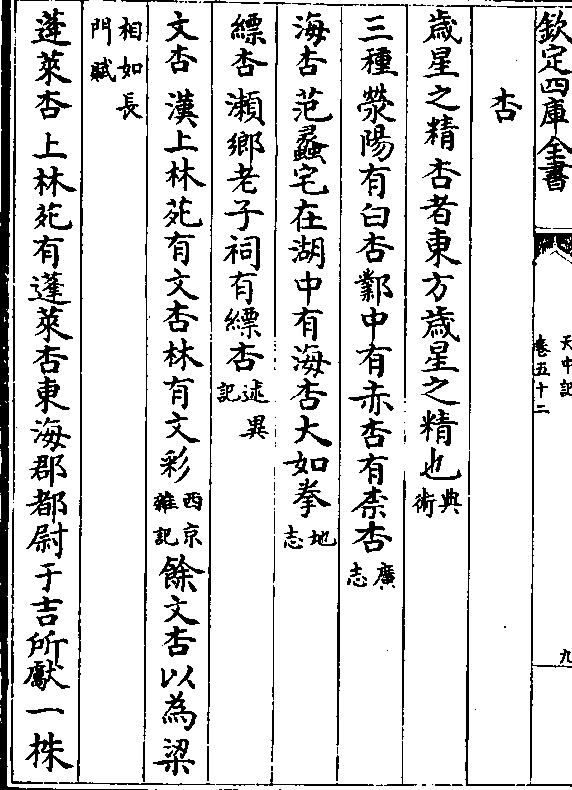 欽定四庫全書
天中記
卷五十二
九
杏
歲星之精杏者東方歲星之精也典術
三種滎陽有白杏鄴中有赤杏有柰杏廣志
海杏范蠡宅在湖中有海杏大如拳地志
縹杏瀨鄉老子祠有縹杏述異記
文杏漢上林苑有文杏林有文彩西京雜記餘文杏以為梁
相如長門賦
蓬萊杏上林苑有蓬萊杏東海郡都尉于吉所獻一株